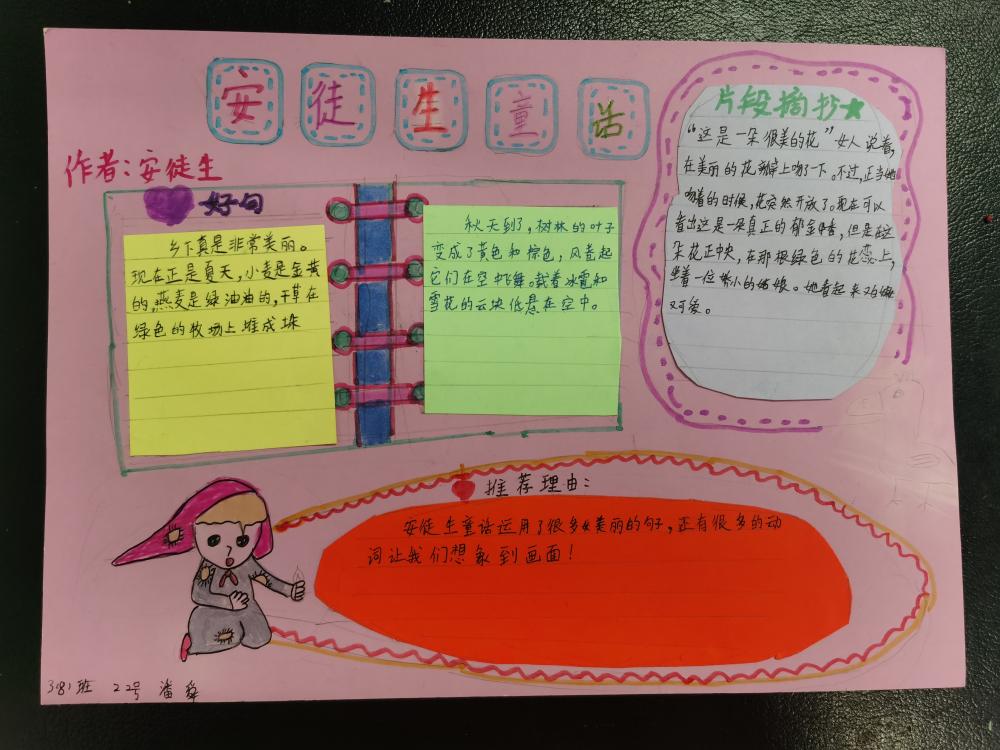 安徒生童话
作者:安徒生
好句
乡下真是非常美丽。
现在正是夏天,小麦是金黄
的,燕麦是绿油油的,干草在
绿色的牧场上堆成垛
秋天到了,树林的叶子
变成了黄色和棕色,风卷起
它们在空中飞舞。载着冰雹和
雪花的云块低悬在空中。
片段摘抄★
“这是一朵很美的花”女人说着,
在美丽的花瓣上吻了一下。不过,正当她
吻着的时候,花突然开放了。现在可以
看出这是一朵真正的郁金香,但是在这
朵花正中央,在那根绿色的花蕊上,
坐着一位娇小的姑娘。她看起来
又可爱。
推荐理由:
安徒生童话运用了很多美丽的句子,还有很多的动
词让我们想象到画面!
3(8)班 22号 潘舜